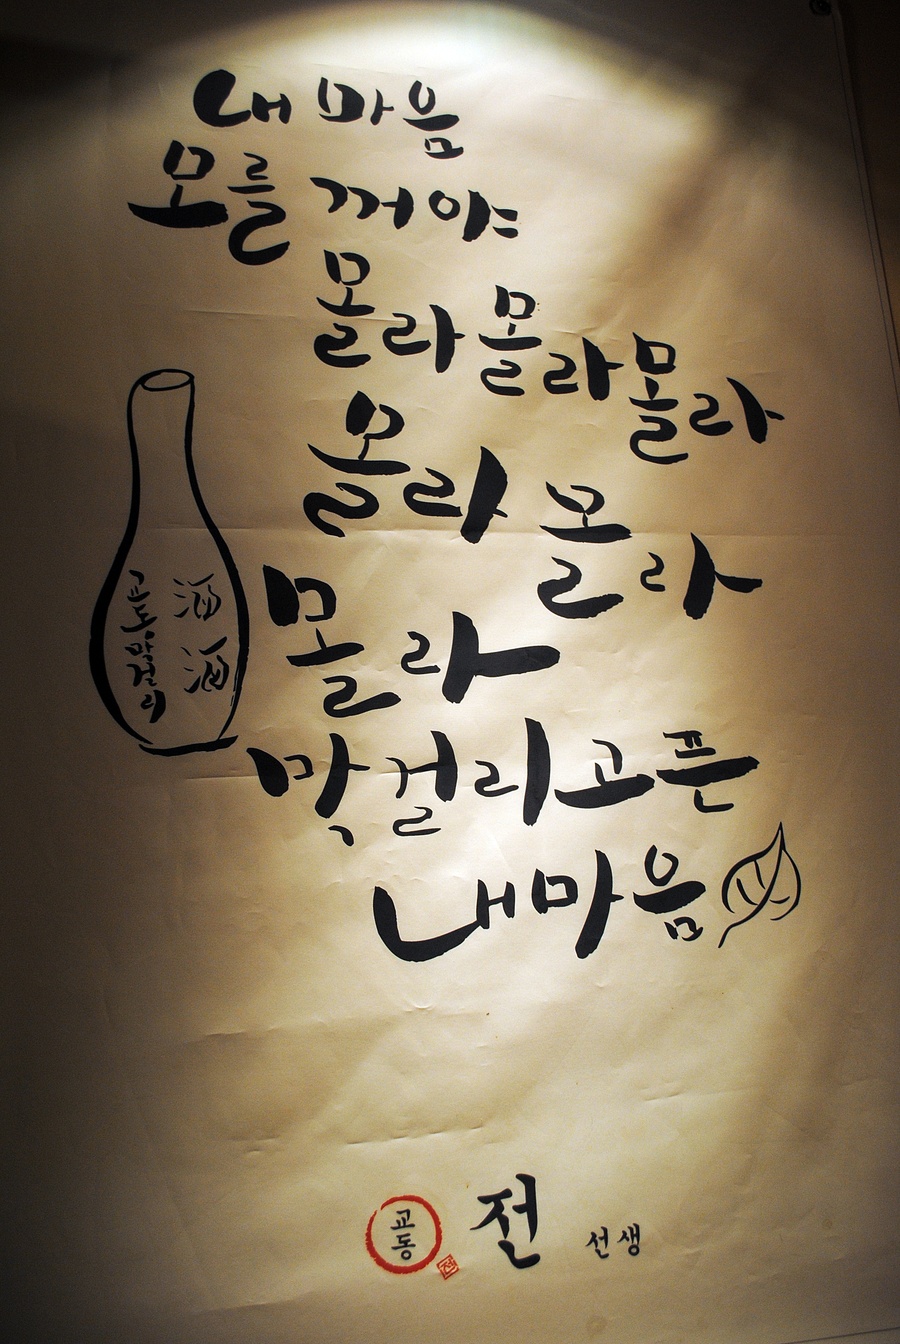 내 마음
모를 꺼야
몰라 몰라 몰라
몰라 몰라
몰라
막걸리고픈
내마음
酒 酒
교동막걸리
교동 전 선생
전